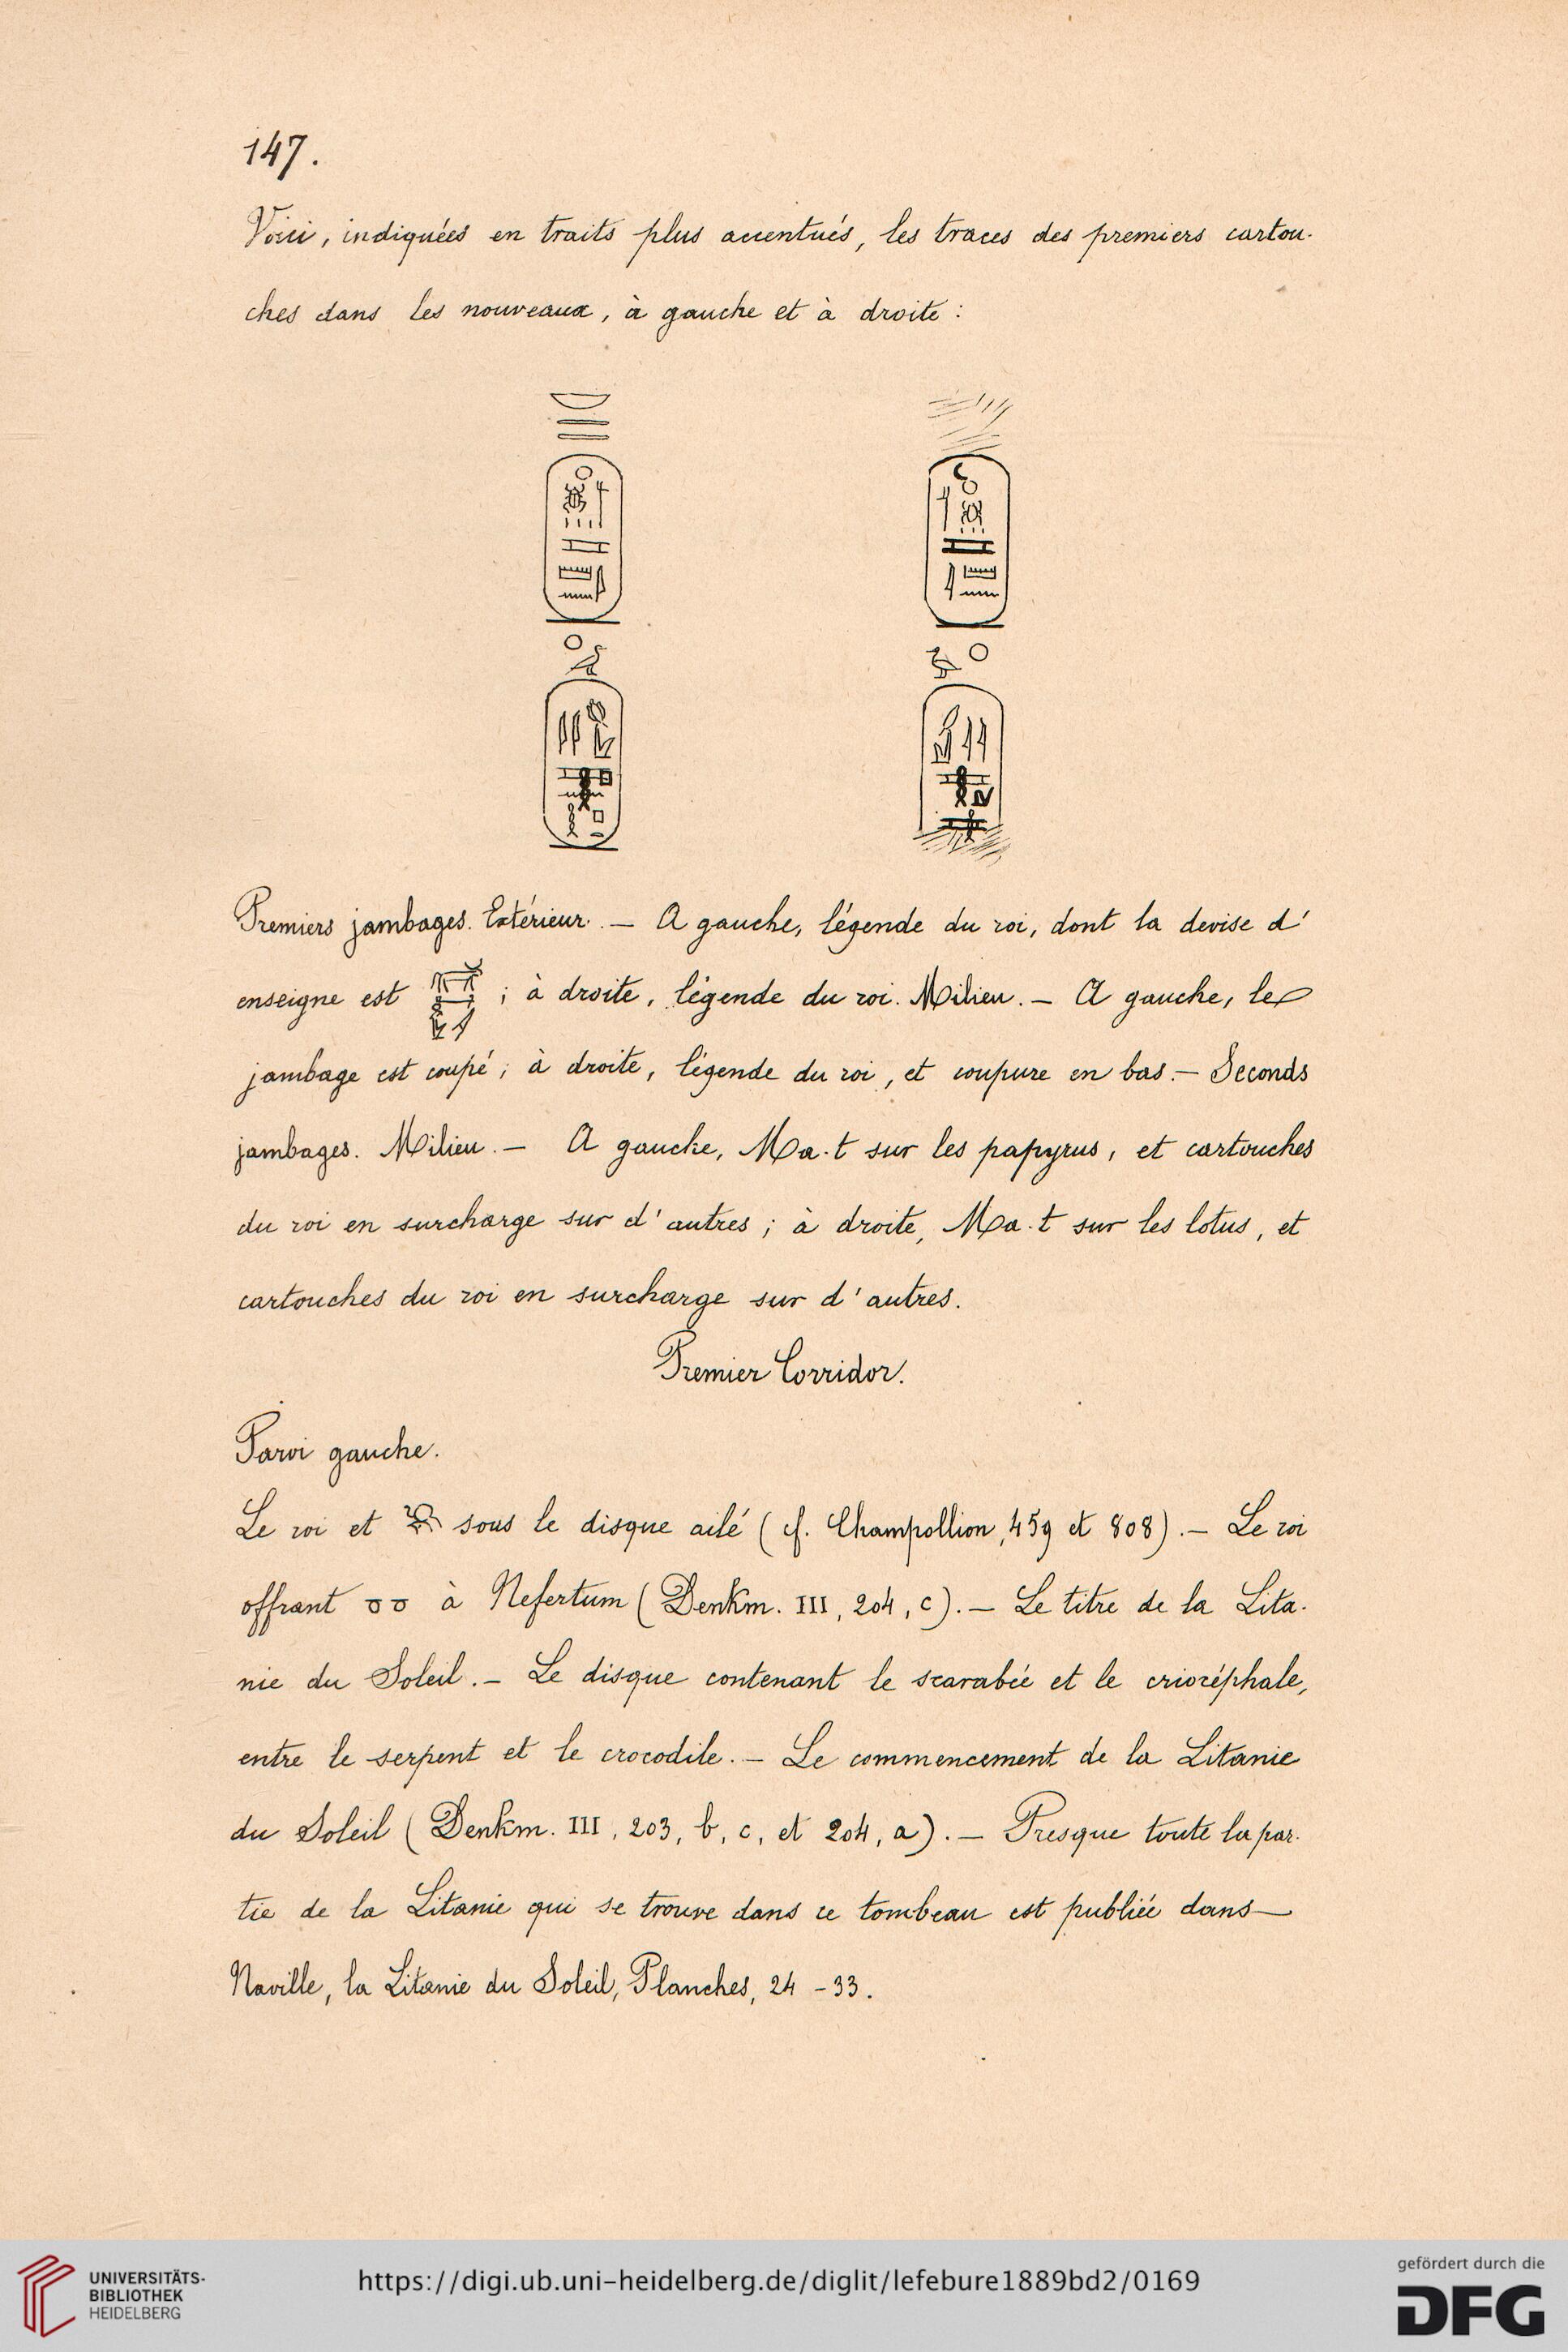 147.
Voici, indiquées en traits plus accentués, les traces des premiers cartou-
ches dans les nouveaux, à gauche et à droite :
Premiers jambages. Extérieur. — A gauche, légende du roi, dont la devise d'
enseigne est ; à droite, légende du roi. Milieu. — A gauche, le
jambage est coupé ; à droite, légende du roi, et coupure en bas. — Seconds
jambages. Milieu. — A gauche, Ma.t sur les papyrus, et cartouches
du roi en surcharge sur d'autres ; à droite, Ma.t sur les lotus, et
cartouches du roi en surcharge sur d'autres.
Premier Corridor.
Paroi gauche.
Le roi et sous le disque ailé (cf. Champollion, 459 et 808). — Le roi
offrant à Nefertum (Denkm. III, 204, c). — Le titre de la Lita-
nie du Soleil. — Le disque contenant le scarabée et le criocéphale,
entre le serpent et le crocodile. — Le commencement de la Litanie
du Soleil (Denkm. III, 203, b, c, et 204, a). — Presque toute la par-
tie de la Litanie qui se trouve dans ce tombeau est publiée dans
Naville, la Litanie du Soleil, Planches, 24 - 33.
UNIVERSITÄTS-
BIBLIOTHEK
HEIDELBERG
https://digi.ub.uni-heidelberg.de/diglit/lefebure1889bd2/0169
gefördert durch die
DFG